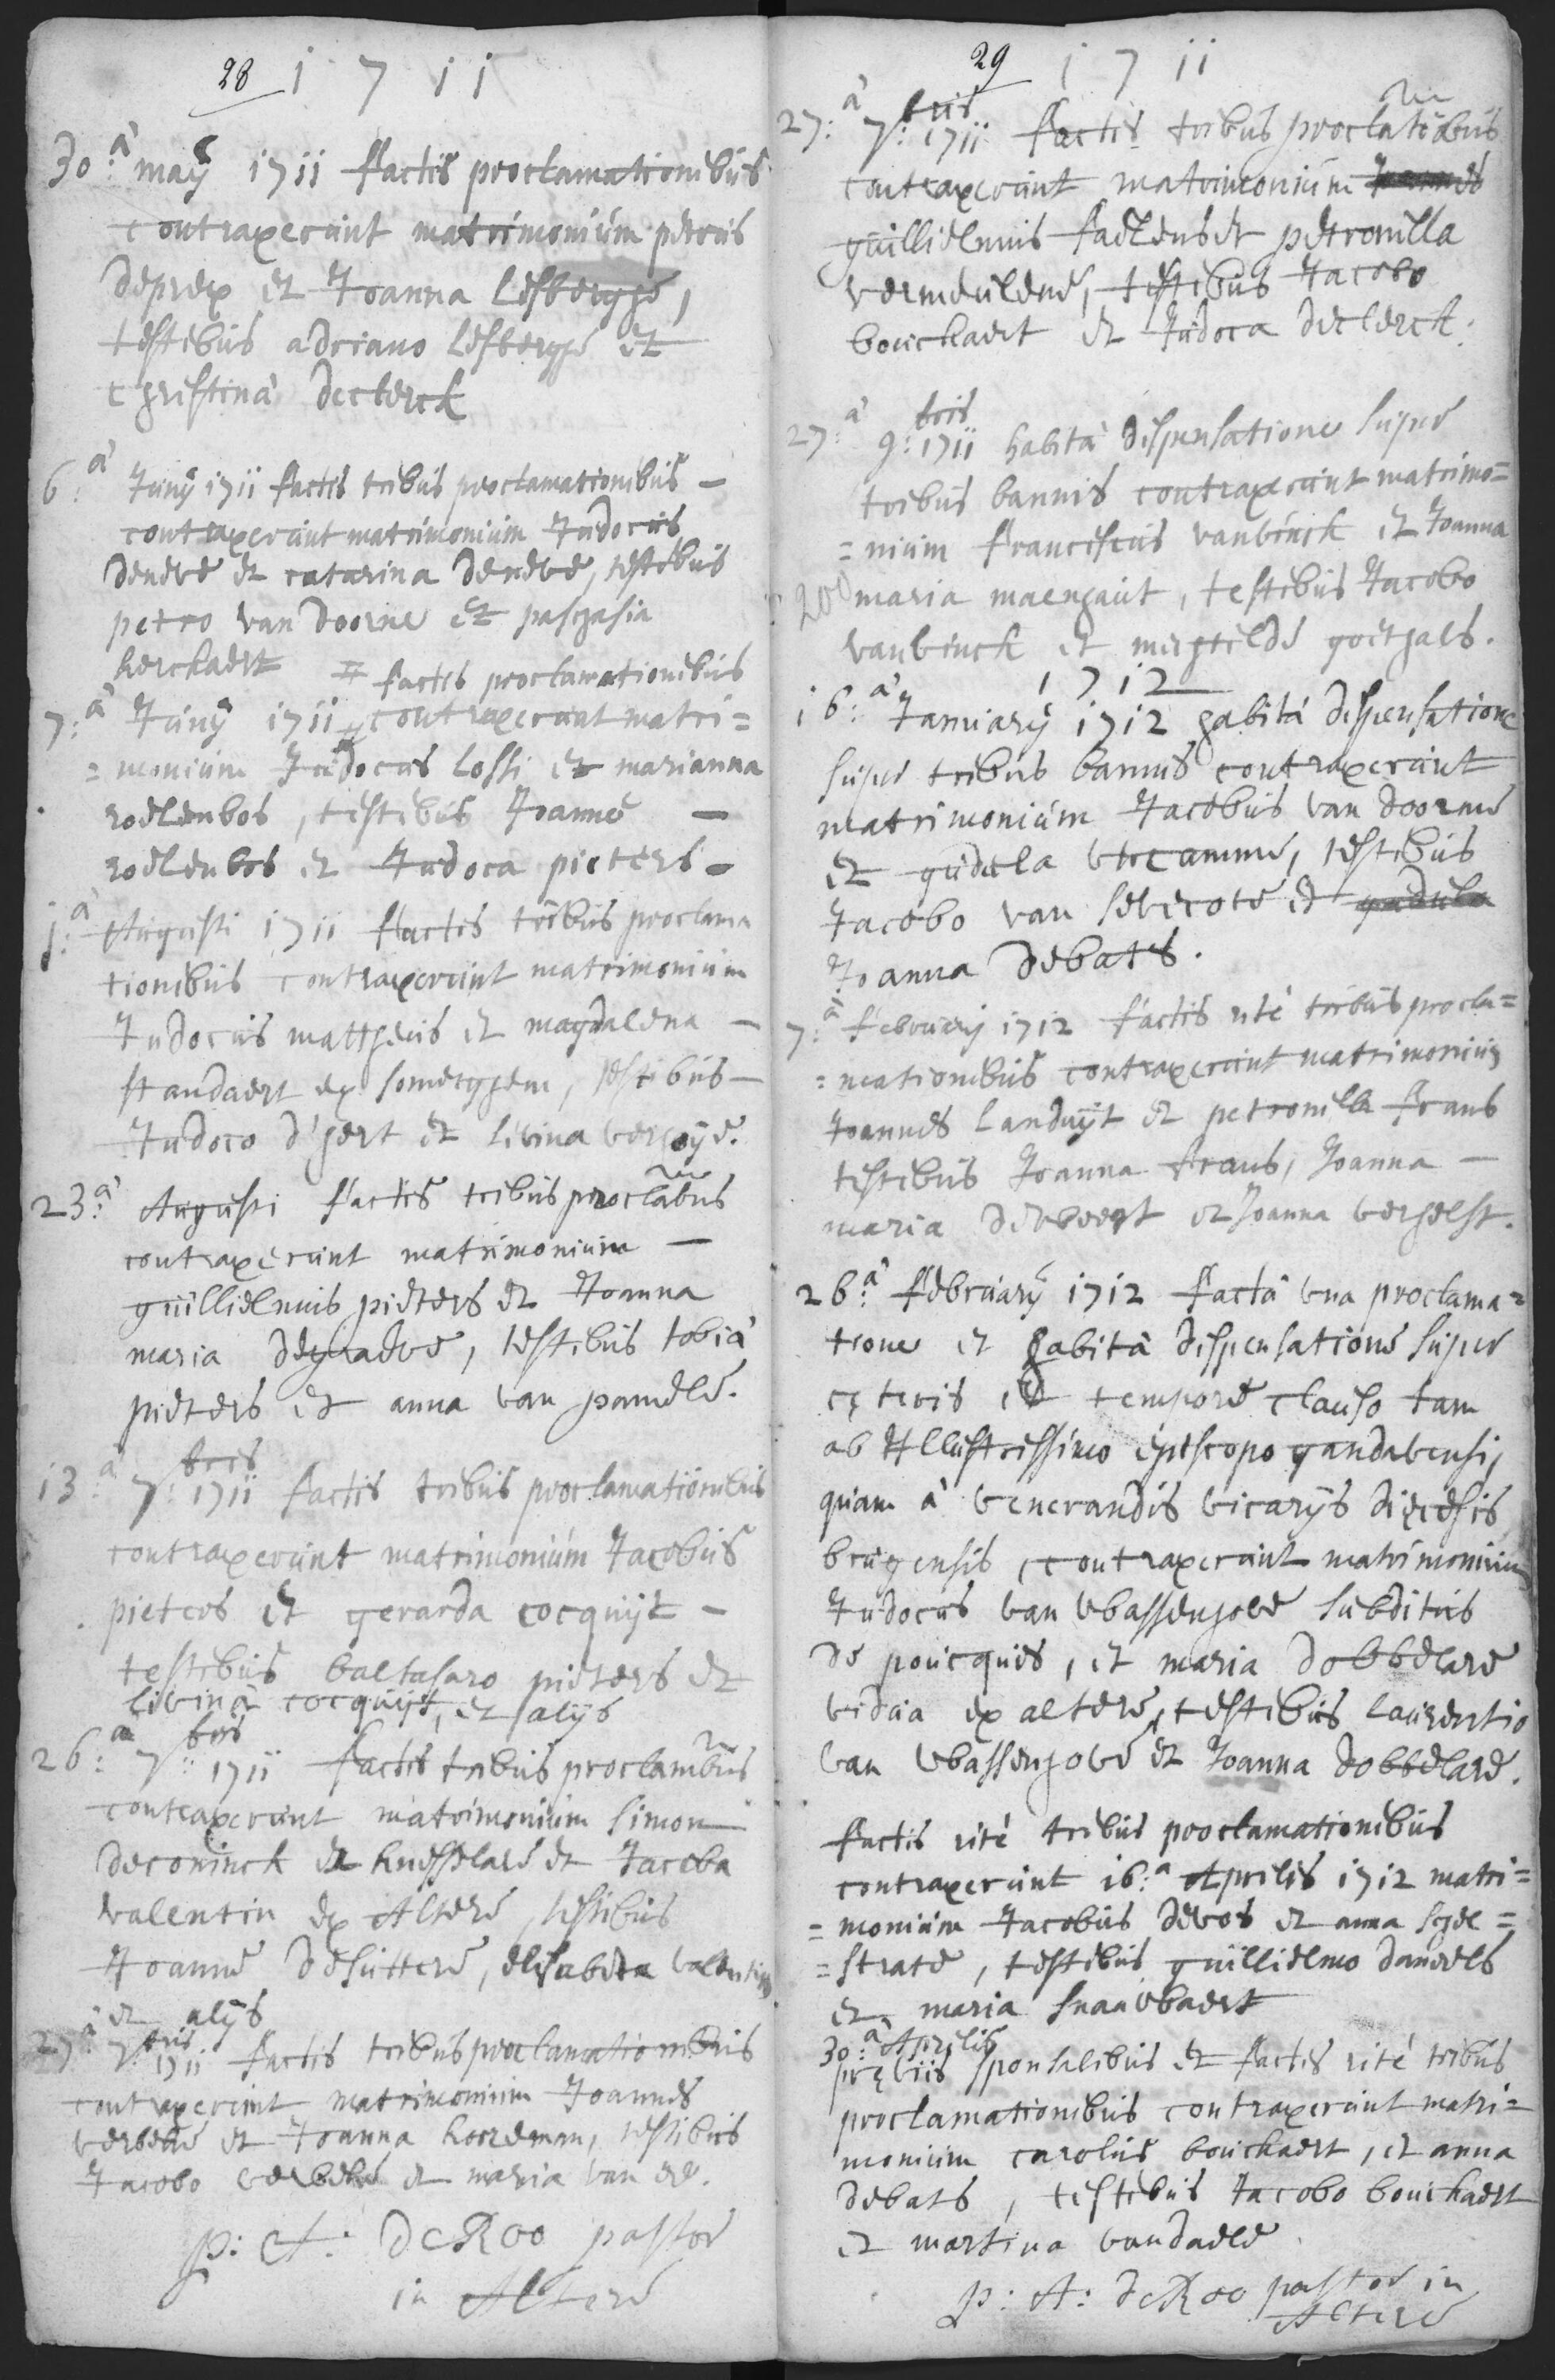 28 1711
30:ª maÿ 1711 factis proclamationibus
contraxerunt matrimonium petrus
deprex et Joanna lesberghe,
testibus adriano lesberghe et
christina declerck
6:ª Junÿ 1711 factis tribus proclamationibus —
contraxerunt matrimonium Judocus
deneve et catarina deneve, testibus
petro van doorne et paschasia
herckaert
⌗ factis proclamationibus
7:ª Junÿ 1711 ⌗ contraxerunt matri=
=monium Judocus lossi et marianna
roelenbos, testibus Joanne —
roelenbos et Judoca pieters —
1:ª Augusti 1711 factis tribus proclama
tionibus contraxerunt matrimonium
Judocus mattheus et magdalena —
standaert ex somerghem, testibus —
Judoco d'hert et livina
23:ª Augusti factis tribus proclãbus
contraxerunt matrimonium —
guillielmus pieters et Joanna
maria degraeve, testibus tobiâ
pieters et anna van pamele.
13:ª 7:bris 1711 factis tribus proclamationibus
contraxerunt matrimonium Jacobus
pieters et gerarda cocquyt —
testibus baltasaro pieters et
livinâ cocquyt, et alÿs
26:ª 7:bris 1711 factis tribus proclamb̃us
contraxerunt matrimonium simon
deconinck ex knesselare et Jacoba
valentin ex Altere, testibus
Joanne desuttere, elisabeta valentin
et alÿs
27:ª 7:bris 1711 factis tribus proclamationibus
contraxerunt matrimonium Joannes
verbeke et Joanna hooreman, testibus
Jacobo verbeke et maria van
p: A: DeRoo pastor
in Altere
29 1711
27:ª 7:bris 1711 factis tribus proclatiõbus
contraxerunt matrimonium
guillielmus et petronilla
vermeulene, testibus Jacobo
bouckaert et Judoca declerck.
27:ª 9:bris 1711 habitâ dispensatione super
tribus bannis contraxerunt matrimo=
=nium franciscus vanvinck et Joanna
200 maria maenhaut, testibus Jacobo
vanvinck et mechtilde goethals.
1712
16:ª Januarÿ 1712 habitâ dispensatione
super tribus bannis contraxerunt
matrimonium Jacobus van doorne
et gudula vtecamme, testibus
Jacobo van sevecote et gudula
Joanna debats.
7:ª februarij 1712 factis rité tribus procla=
=mationibus contraxerunt matrimonium
Joannes landuÿt et petronilla frans
testibus Joanna frans, Joanna —
maria et Joanna verhelst.
26:ª februarÿ 1712 factâ vna proclama=
tione et habitâ dispensatione super
cęteris et tempore clauso tam
ab Illustrissimo episcopo gandavensi,
quam à venerandis vicarÿs dięcesis
brugensis, contraxerunt matrimonium
Judocus van wassenhove subditus
de poucques, et maria dobbelare
vidua ex altere, testibus laurentio
van wassenhove et Joanna dobbelare.
factis rité tribus proclamationibus
contraxerunt 16:ª Aprilis 1712 matri=
=monium Jacobus devos et anna schel=
=strate, testibus guillielmo daneels
et maria snauwaert
30:ª Aprilis
pręviis sponsalibus et factis rité tribus
proclamationibus contraxerunt matri=
monium carolus bouckaert, et anna
debats, testibus Jacobo bouckaert
et martina vandaele
p: A: DeRoo pastor in
Altere